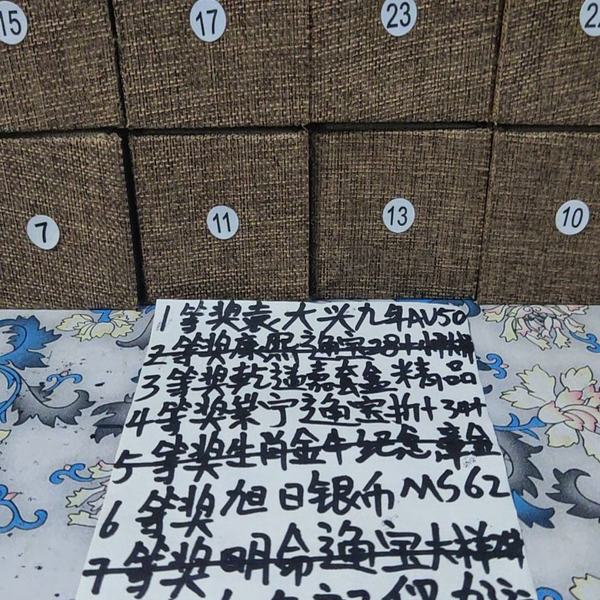 15 17 23 22
7 11 13 10
1等奖袁大兴九年AU50
2等奖康熙通宝28十
3等奖乾道嘉套盒精品
4等奖崇宁通宝折十3
5等奖生肖金牛纪念章金
6等奖旭日银币MS62
7等奖明命通宝大样